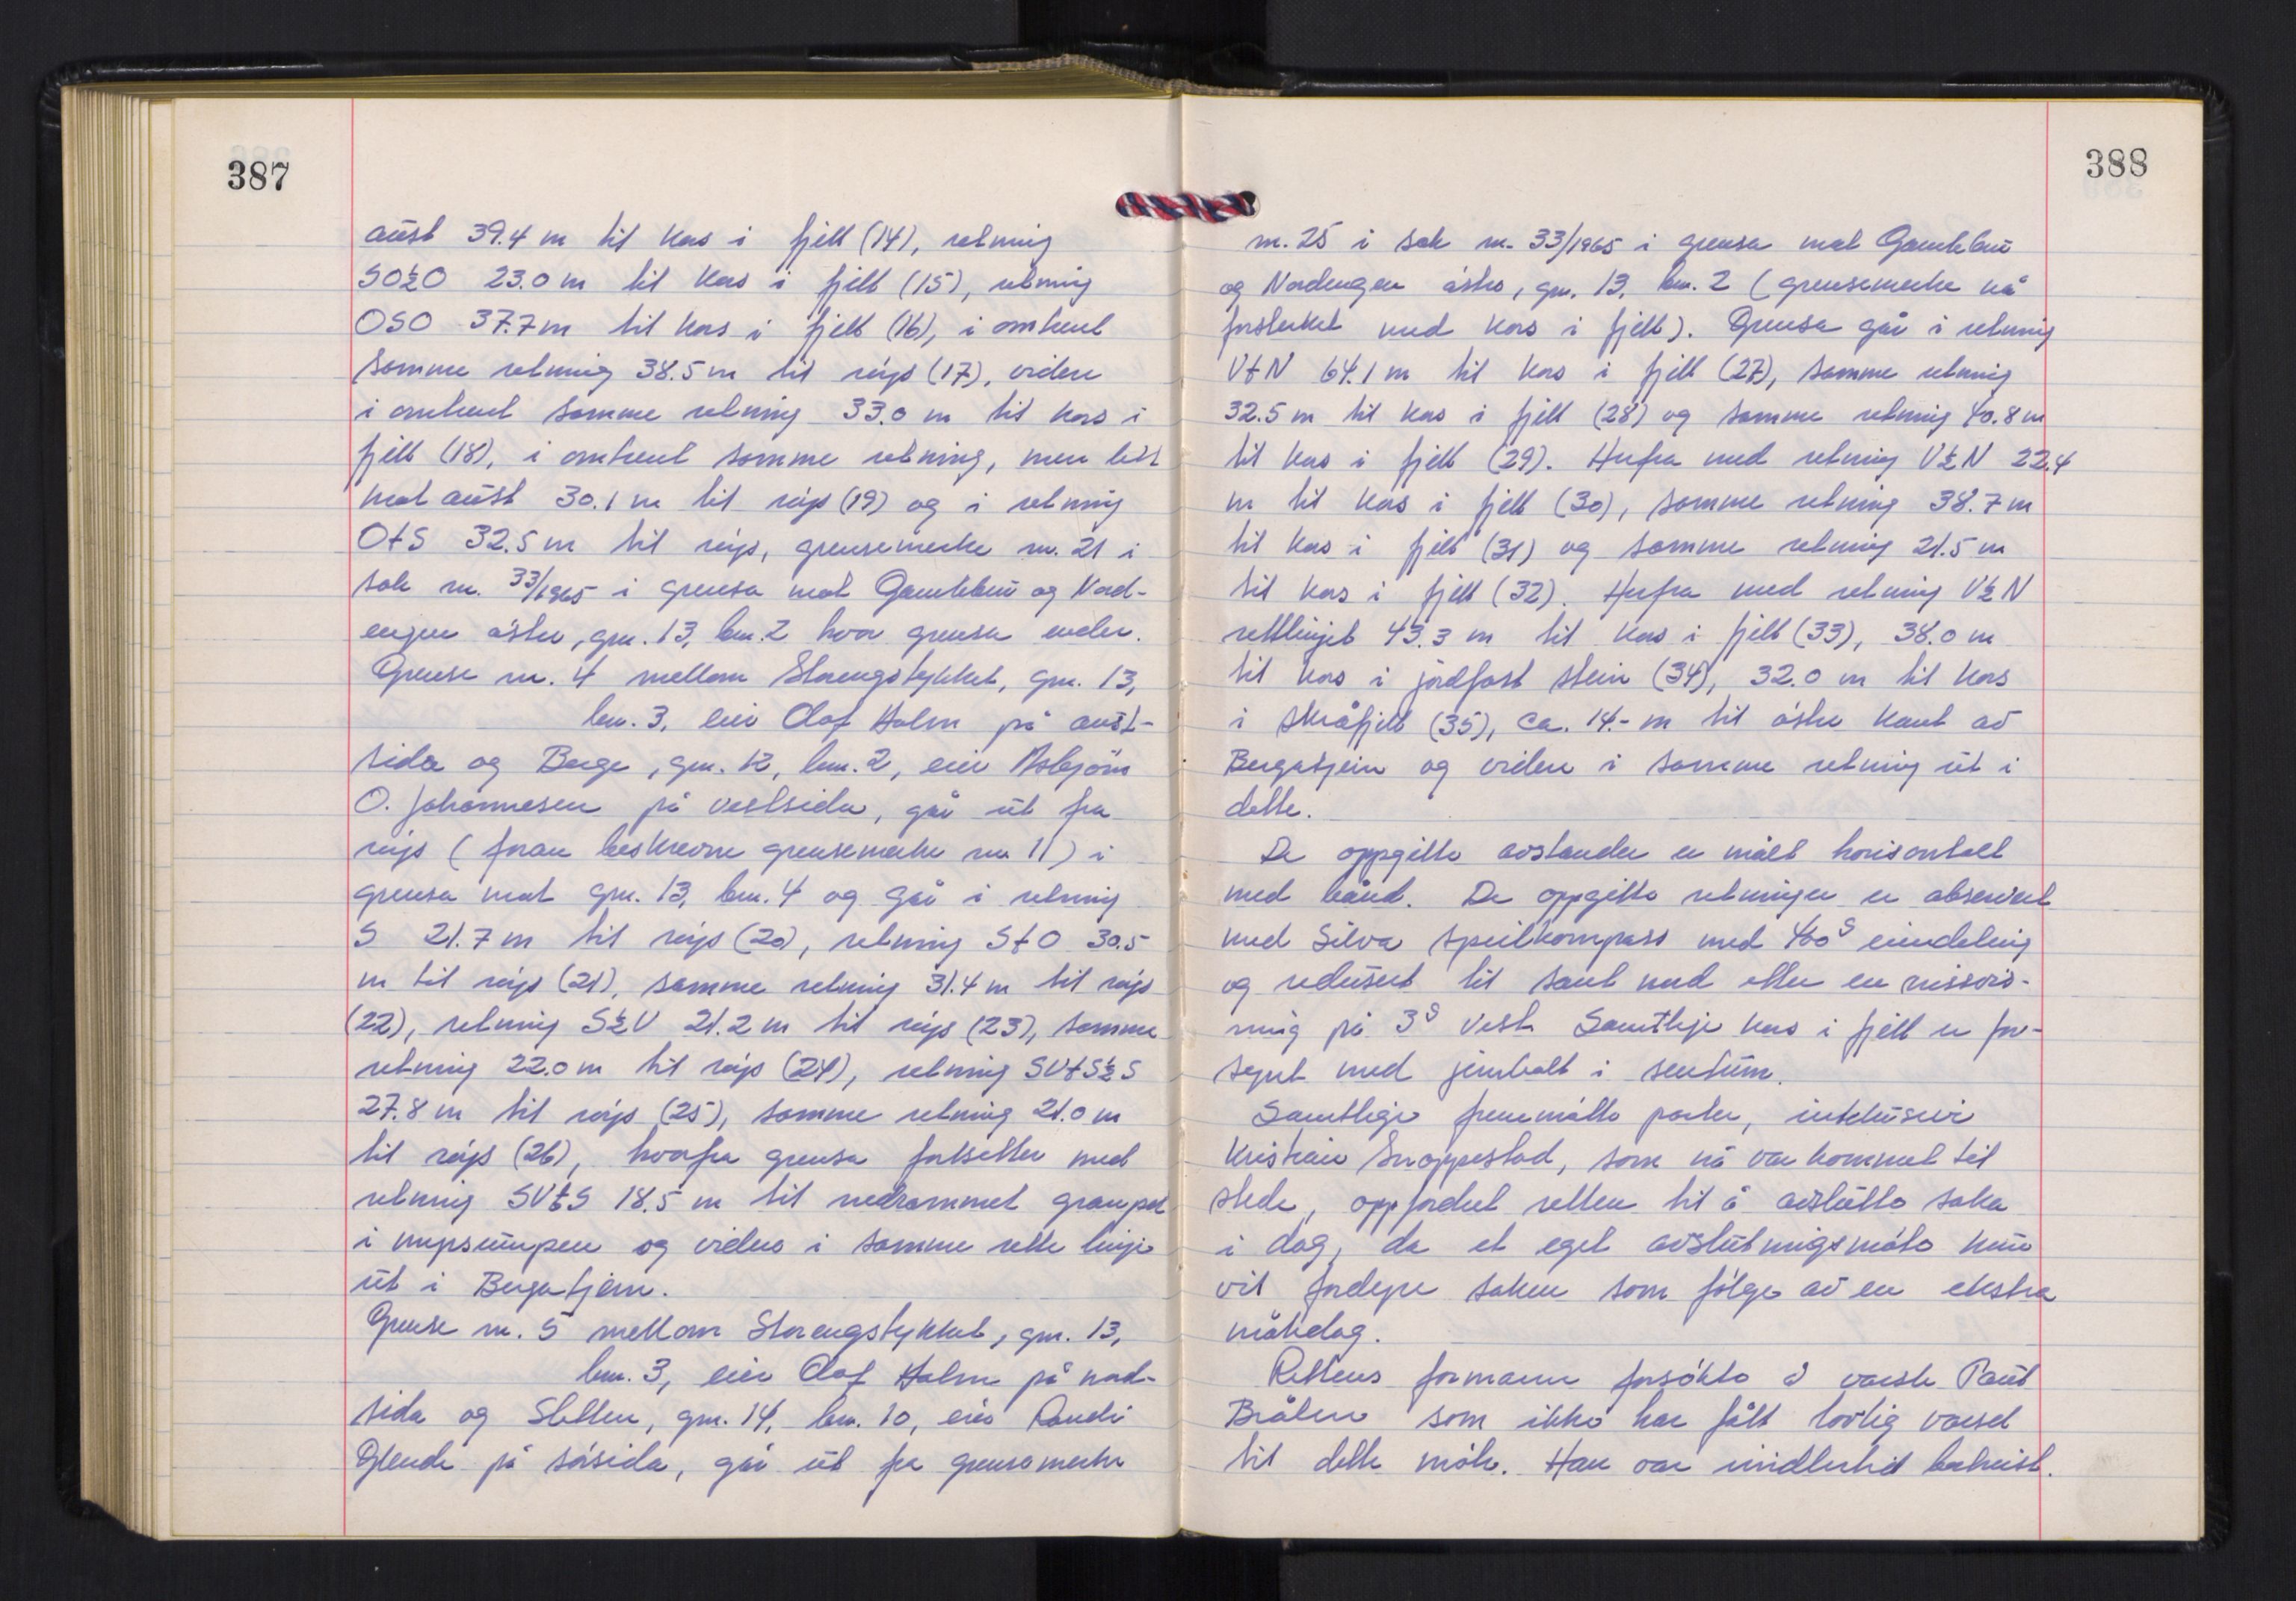 387
aust 39.4 m til kors i fjell (14), retning
SO½O 23.0 m til kors i fjell (15), retning
OSO 37.7 m til kors i fjell (16), i omtrent
samme retning 38.5 m til røys (17), videre
i omtrent samme retning 33.0 m til kors i
fjell (18), i omtrent samme retning, men litt
mot aust 30.1 m til røys (19) og i retning
OtS 32.5 m til røys, grensemerke nr. 21 i
sak nr. 33/1965 i grensa mot Gamlebu og Nord-
engen østre, gnr. 13, bnr. 2 hvor grensa ender.
Grense nr. 4 mellom Storengstykket, gnr. 13,
bnr. 3, eier Olaf Holm på aust-
sida og Berge, gnr. 12, bnr. 2, eier Asbjørn
O. Johannesen på vestsida, går ut fra
røys (foran beskrevne grensemerke nr. 11) i
grensa mot gnr. 13, bnr. 4 og går i retning
S 21.7 m til røys (20), retning StO 30.5
m til røys (21), samme retning 31.4 m til røys
(22), retning S½V 21.2 m til røys (23), samme
retning 22.0 m til røys (24), retning SVtS½S
27.8 m til røys (25), samme retning 21.0 m
til røys (26), hvorfra grensa fortsetter med
retning SVtS 18.5 m til nedrammet granpel
i myrsumpen og videre i samme rette linje
ut i Bergatjern.
Grense nr. 5 mellom Storengstykket, gnr. 13,
bnr. 3, eier Olaf Holm på nord-
sida og Sletten, gnr. 14, bnr. 10, eier Randi
Glende på sørsida, går ut fra grensemerke
388
nr. 25 i sak nr. 33/1965 i grensa mot Gamlebu
og Nordengen østre, gnr. 13, bnr. 2 (grensemerke nå
forsterket med kors i fjell). Grensa går i retning
VtN 64.1 m til kors i fjell (27), samme retning
32.5 m til kors i fjell (28) og samme retning 40.8 m
til kors i fjell (29). Herfra med retning V½N 22.4
m til kors i fjell (30), samme retning 38.7 m
til kors i fjell (31) og samme retning 21.5 m
til kors i fjell (32). Herfra med retning V½N
rettlinjet 43.3 m til kors i fjell (33), 38.0 m
til kors i jordfast stein (34), 32.0 m til kors
i skråfjell (35), ca. 14.- m til østre kant av
Bergatjern og videre i samme retning ut i
dette.
De oppgitte avstander er målt horisontalt
med bånd. De oppgitte retninger er observert
med Silva speilkompass med 400g inndeling
og redusert til sant nord etter en missvis-
ning på 3g vest. Samtlige kors i fjell er for-
synt med jernbolt i sentrum.
Samtlige fremmøtte parter, inklusive
Kristian Snoppestad, som nå var kommet til
stede, oppfordret retten til å avslutte saka
i dag, da et eget avslutningsmøte kun
vil fordyre saken som følge av en ekstra
møtedag.
Rettens formann forsøkte å varsle Paul
Bråten som ikke har fått lovlig varsel
til dette møte. Han var imidlertid bortreist.